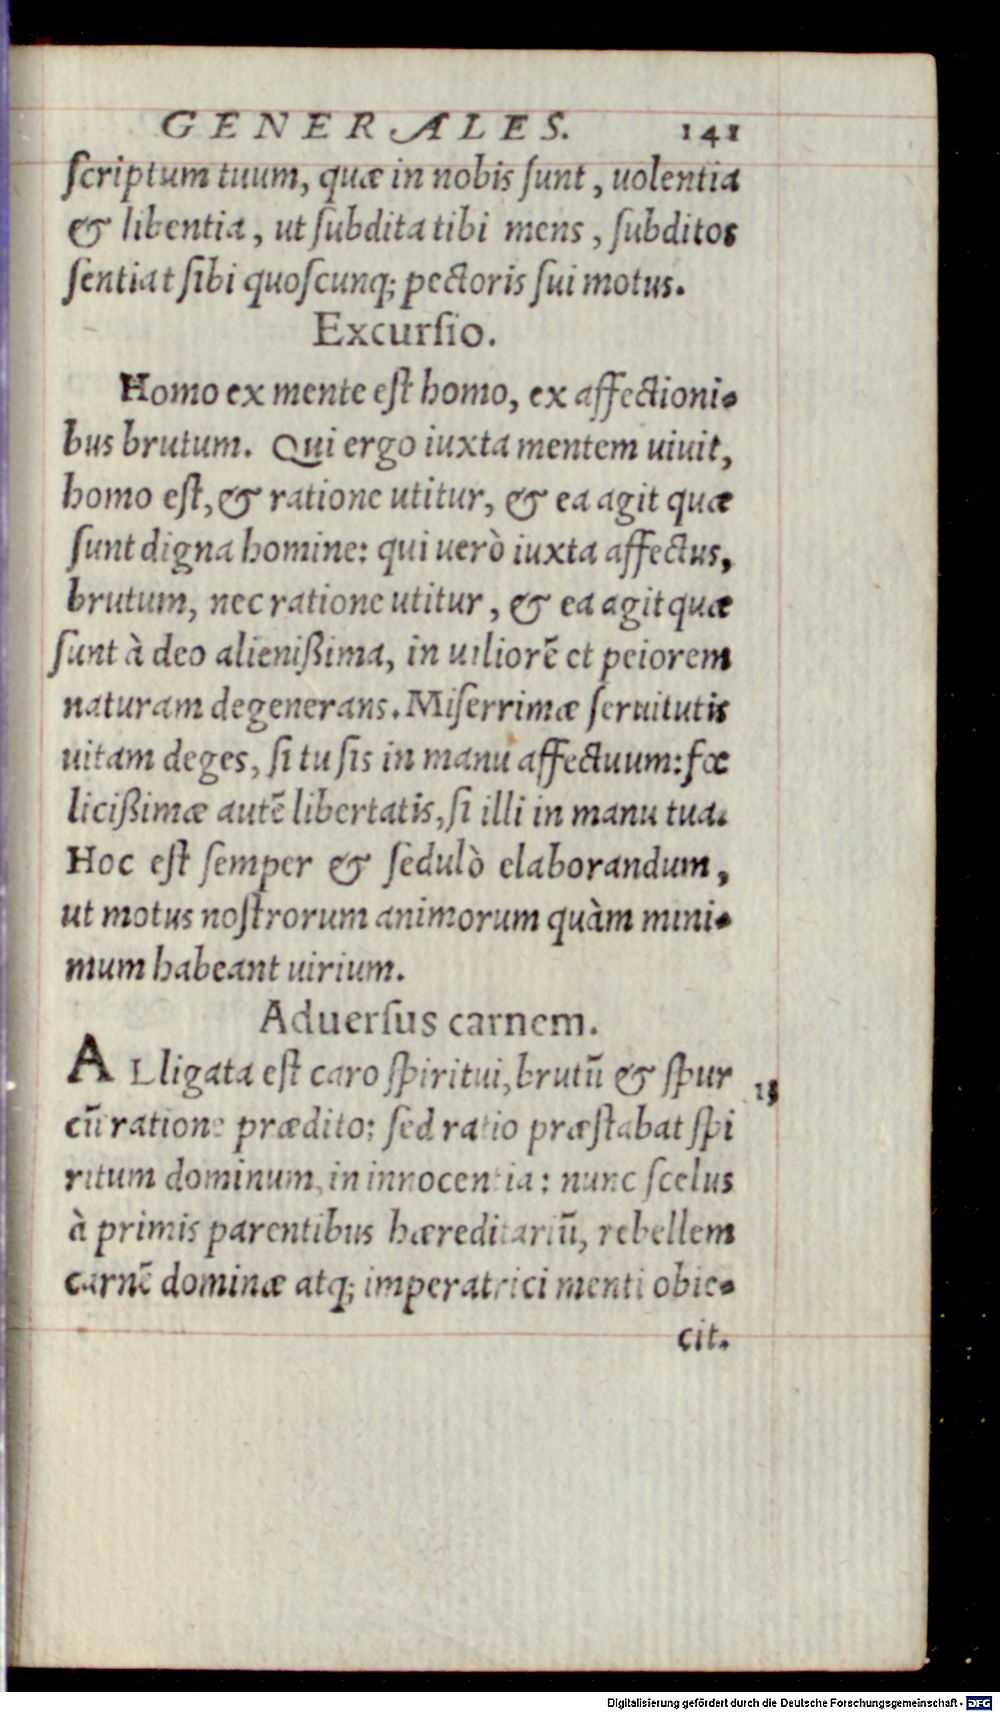 GENERALES. 141
ſcriptum tuum, quæ in nobis ſunt, uolentia
& libentia, ut ſubdita tibi mens, ſubditos
ſentiat ſibi quoſcunq; pectoris ſui motus.
Excurſio.
Homo ex mente eſt homo, ex affectioni-
bus brutum. Qui ergo iuxta mentem uiuit,
homo eſt, & ratione utitur, & ea agit quæ
ſunt digna homine: qui uerò iuxta affectus,
brutum, nec ratione utitur, & ea agit quæ
ſunt à deo alienißima, in uiliorē et peiorem
naturam degenerans. Miſerrimæ ſeruitutis
uitam deges, ſi tu ſis in manu affectuum: fœ
licißimæ autē libertatis, ſi illi in manu tua.
Hoc eſt ſemper & ſedulò elaborandum,
ut motus noſtrorum animorum quàm mini-
mum habeant uirium.
Aduerſus carnem.
ALligata eſt caro ſpiritui, brutū & ſpur 13
cū ratione prædito: ſed ratio præſtabat ſpi
ritum dominum, in innocentia: nunc ſcelus
à primis parentibus hæreditariū, rebellem
carnē dominæ atq; imperatrici menti obie-
cit.
Digitalisierung gefördert durch die Deutsche Forschungsgemeinschaft - DFG